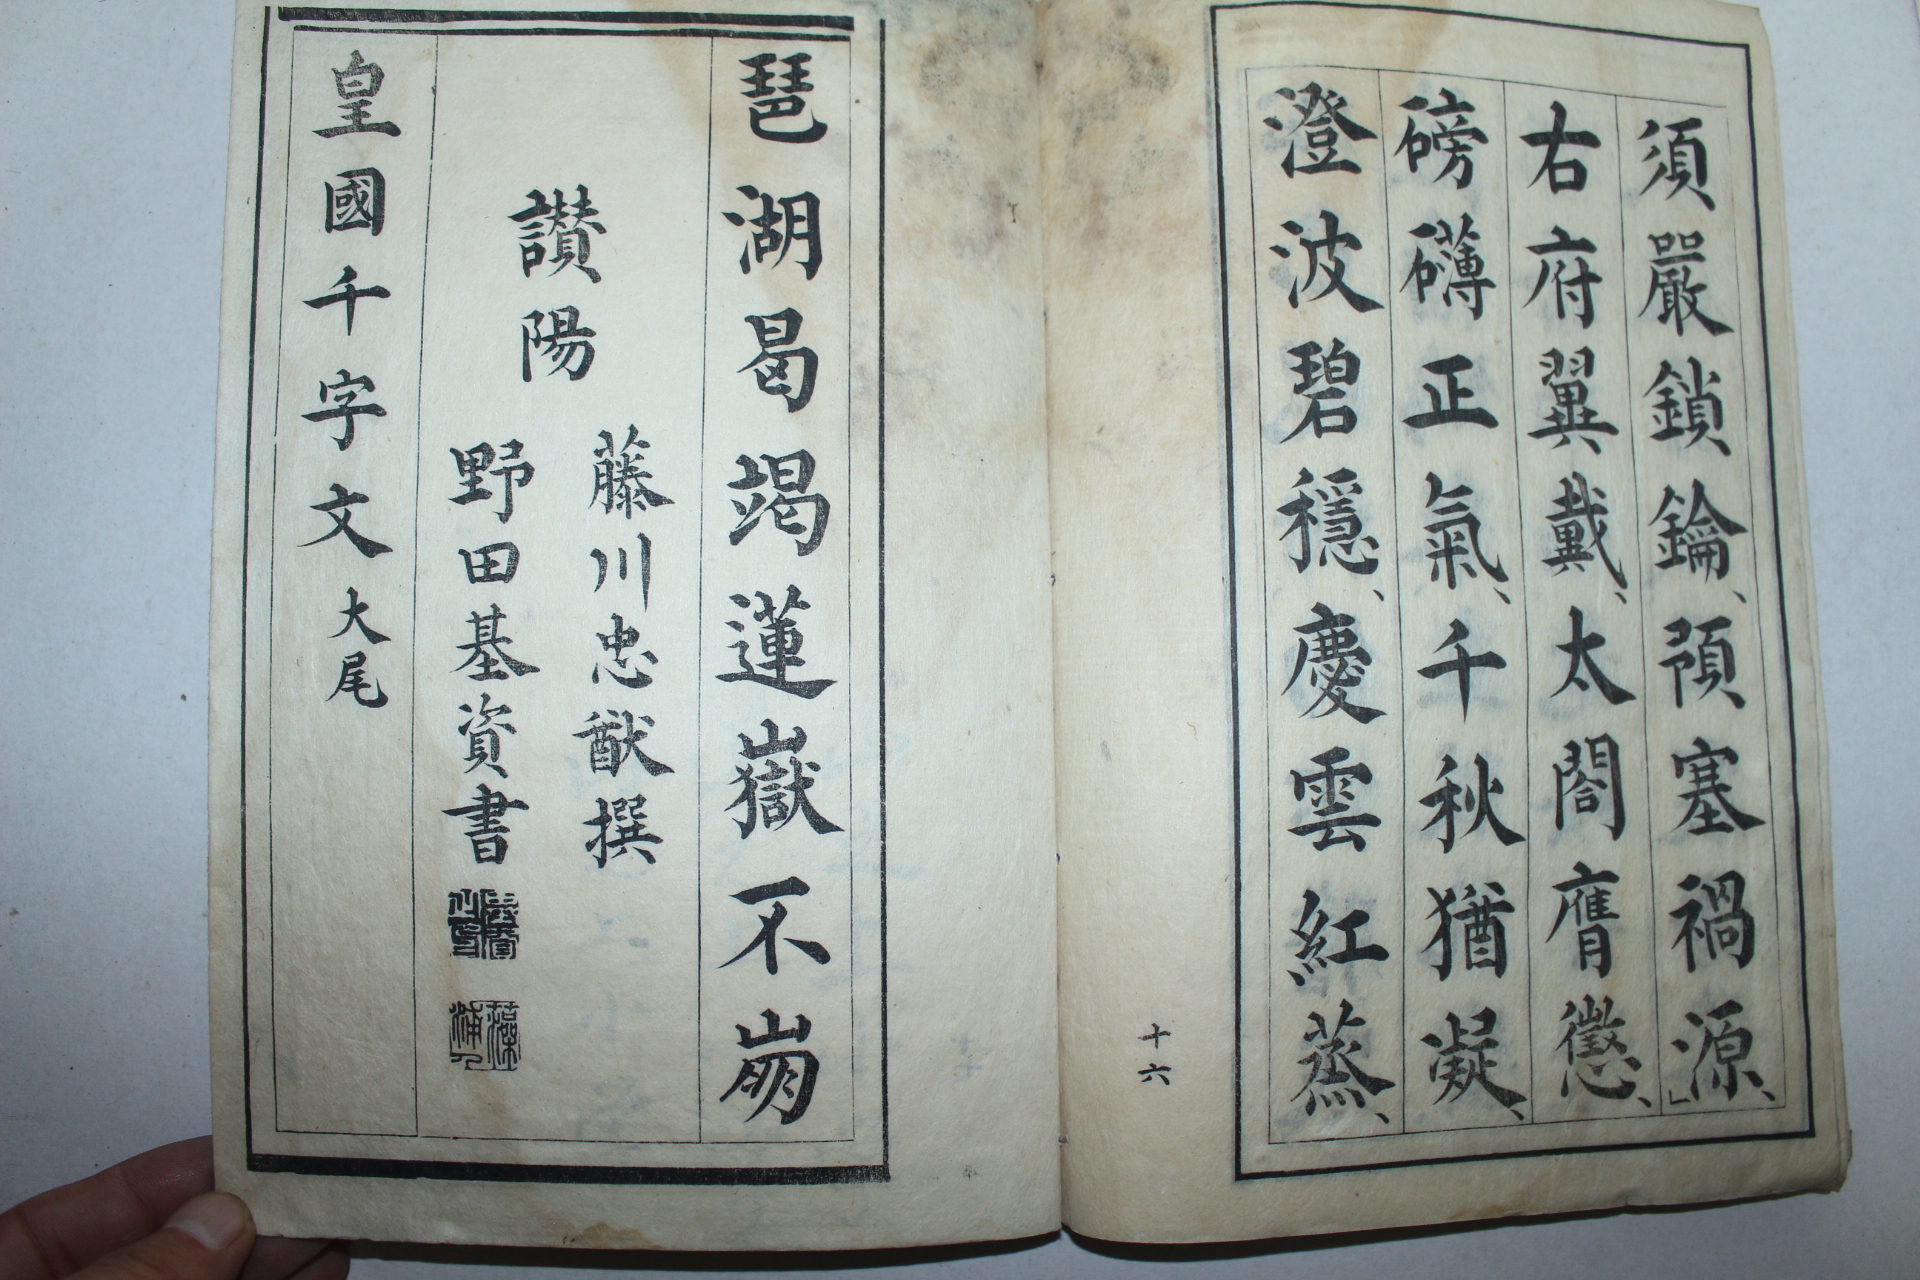 須嚴鎖鑰、預塞禍源、」
右府翼戴、太閤膺懲、
磅礴正氣、千秋猶凝、
澄波碧穩、慶雲紅蒸、
十六
琶湖曷竭蓮嶽不崩
讃陽
藤川忠猷撰
野田基資書
皇國千字文大尾